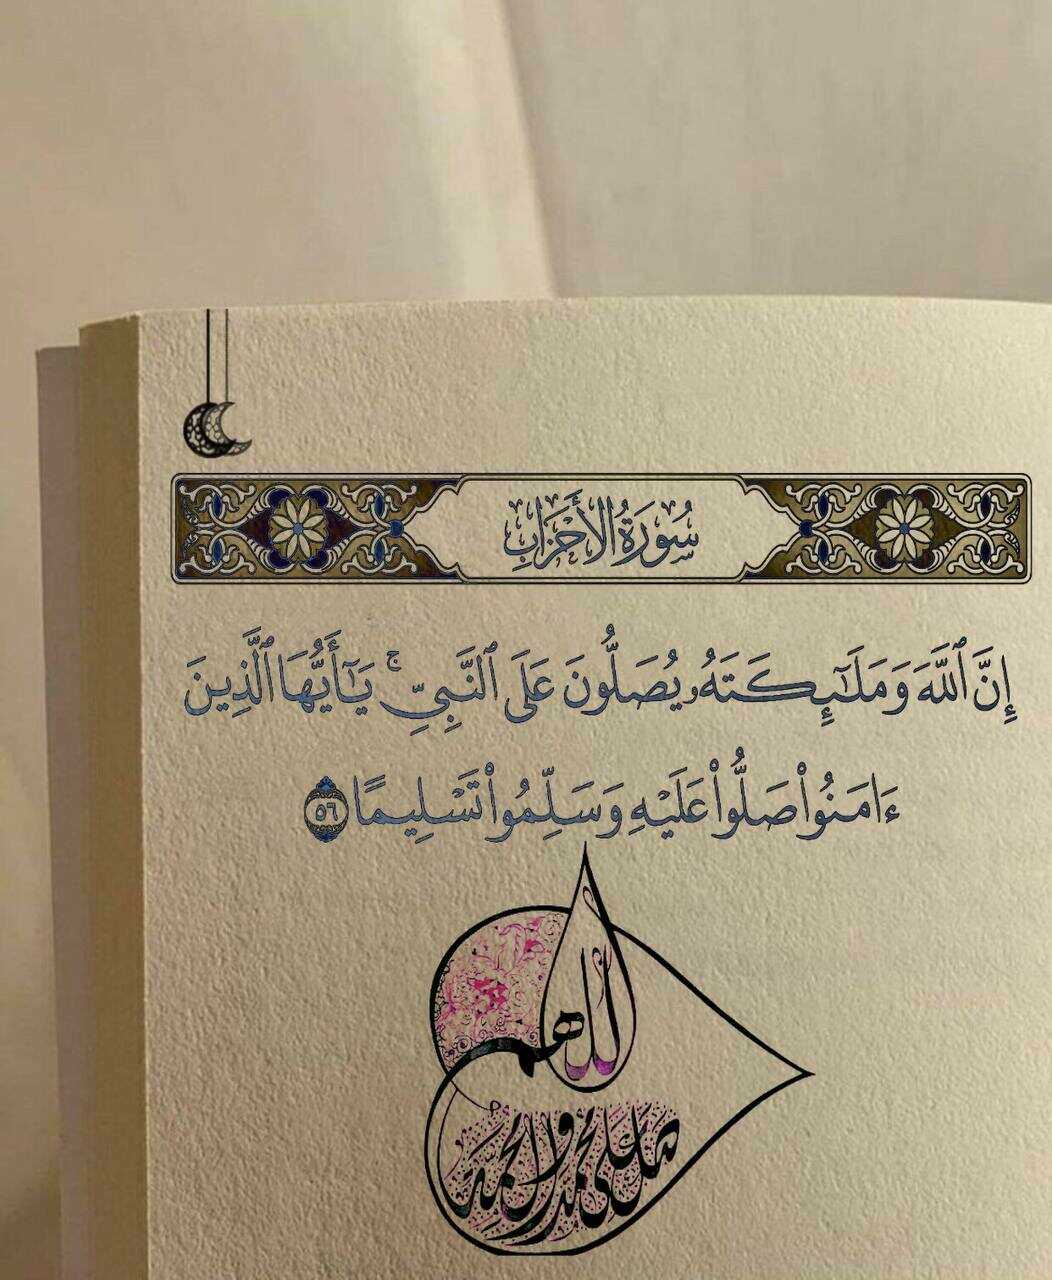 سُورَةُ الأَحْزَابِ
إِنَّ ٱللَّهَ وَمَلَـٰٓئِكَتَهُۥ يُصَلُّونَ عَلَى ٱلنَّبِيِّ ۚ يَـٰٓأَيُّهَا ٱلَّذِينَ
ءَامَنُوا۟ صَلُّوا۟ عَلَيْهِ وَسَلِّمُوا۟ تَسْلِيمًا ٥٦
اللهم
صل على محمد وال محمد